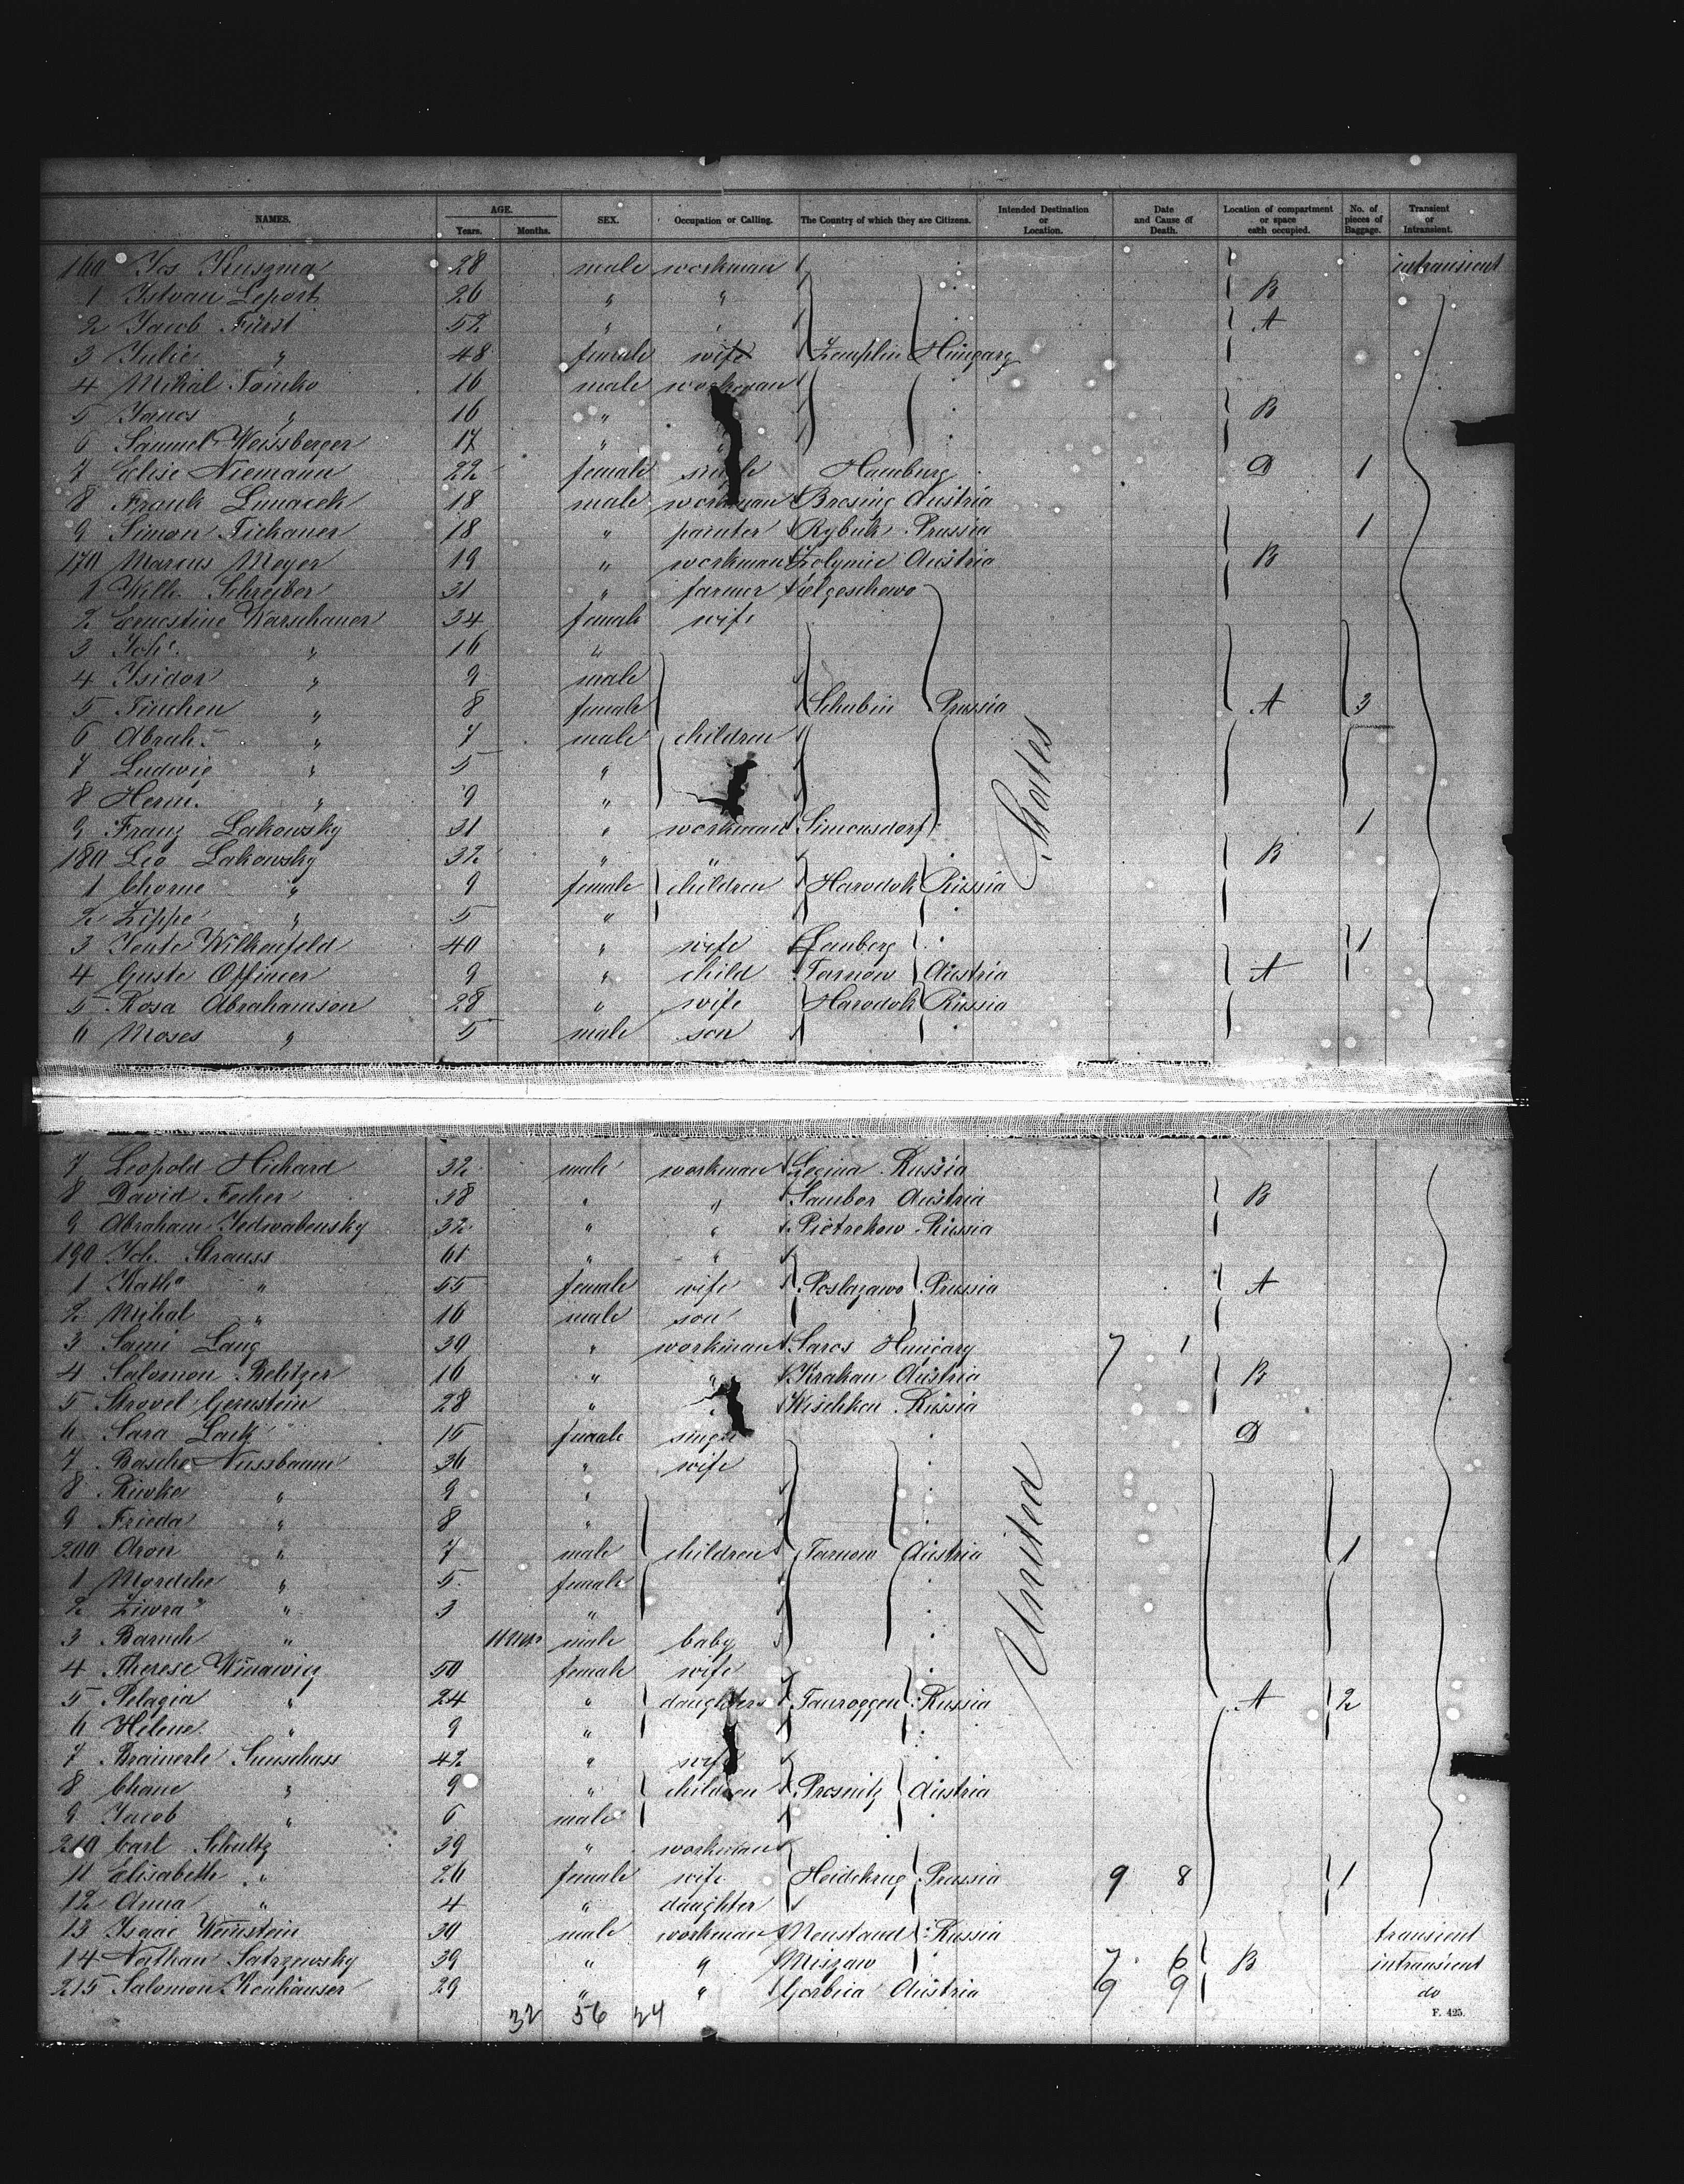 NAMES. AGE. Years. Months. SEX. Occupation or Calling. The Country of which they are Citizens. Intended Destination or Location. Date and Cause of Death. Location of compartment or space each occupied. No. of pieces of Baggage. Transient or Intransient.
160 Jos Kuszma 28 male workman intransient
1 Istvan Leport 26 " " B
2 Jacob Fürst 52 " " A
3 Julie " 48 female wife Zemplin Hungary
4 Mihal Tomko 16 male workman
5 Janos " 16 " B
6 Samuel Weissberger 17 "
7 Elise Niemann 22 female single Hamburg D 1
8 Frank 18 male workman Austria
9 Simon Tichauer 18 " painter Rybnik Prussia 1
170 Marcus Meyer 19 " workman Zolynie Austria B
1 Wilh. Schreiber 31 " farmer
2 Ernestine Warschauer 34 female wife
3 Joh. " 16 "
4 Isidor " 9 male
5 Finchen " 8 female Schubin Prussia A 3
6 Abrah. " 7 male children
7 Ludwig " 5 "
8 Herm. " 9 "
9 Franz Lakowsky 31 " workman Simonsdorf 1
180 Leo Lakowsky 32 " " B
1 Chorne " 9 female children Harodok Russia
2 Zippe " 5 "
3 Jente Wilkenfeld 40 " wife Lemberg 1
4 Guste Offincer 9 " child Tarnow Austria A
5 Rosa Abrahamson 28 " wife Harodok Russia
6 Moses " 5 male son
States
7 Leopold Hichard 32 male workman Russia
8 David Fecher 38 " " Sambor Austria B
9 Abraham Jedwabensky 32 " " Pietrekow Russia
190 Joh. Strauss 61 " "
1 Kath " 55 female wife Prussia A
2 Mihal " 16 male son
3 Sami Lang 30 " workman Saros Hungary 7 1
4 Salomon Belitzer 16 " " Krakau Austria B
5 Gernstein 28 " " Russia
6 Sara Lack 15 female single D
7 Basche Nussbaum 36 " wife
8 Riwke " 9 "
9 Frieda " 8 "
200 Aron " 7 male children Tarnow Austria 1
1 Mordche " 5 female
2 Ziwra " 3 "
3 Baruch " 11 mos male baby
4 Therese 50 female wife
5 Pelagia " 24 " daughters Tauroggen Russia A 2
6 Helene " 9 "
7 Brainerle 42 " wife
8 Chane " 9 " children Prosnitz Austria
9 Jacob " 6 male
210 Carl Schultz 39 " workman
11 Elisabeth " 26 female wife Heidekrug Prussia 9 8 1
12 Anna " 4 " daughter
13 Isaac Weinstein 30 male workman Neustand Russia transient
14 Nathan Satrzewsky 39 " " Miszaw 7 6 B intransient
215 Salomon 29 " " Gorbica Austria 9 9 do
United
32 56 24
F. 425.